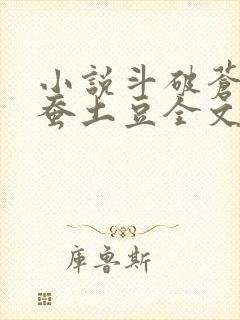 小説斗破蒼
蚕土豆全文
庫魯斯